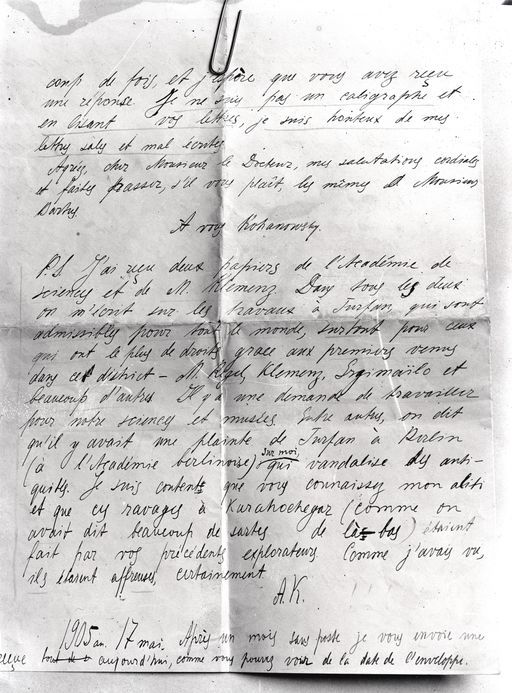 coup de fois, et j'espère que vous avez reçu
une reponse. Je ne suis pas un caligraphe et
en lisant vos lettres, je suis honteux de mes
lettres sales et mal écrites
Agrès, cher Monsieur le Docteur, mes salutations cordiales
et faites passer, s'il vous plaît, les mêmes à Monsieur
Bartus
A vous Kohanowsky.
P.S. J'ai reçu deux papiers de l'Académie de
sciences et de M. Klemenz. Dans tous les deux
on m'ecrit sur les travaux à Turfan, qui sont
admissibles pour tout le monde, surtout pour ceux
qui ont le plus de droits, grace aux premiers venus
dans ce district – M. Klemenz, et
beaucoup d'autres. Il y a une demande de travailler
pour notre science et musées. Entre autres, on dit
qu'il y avait une plainte de Turfan à Berlin
(à l'Académie berlinoise) sur moi, qui vandalise des anti-
quités. Je suis content que vous connaissez mon
et que ces ravages à Karahochegar (comme on
avait dit beaucoup de sartes de là-bas) étaient
fait par vos précédents explorateurs. Comme j'avais vu,
ils étaient affreuses, certainement.
A.K.
1905 an. 17 mai. Après un mois sans poste je vous envoie une
reçue aujourd'hui, comme vous pouvez voir de la date de l'enveloppe.